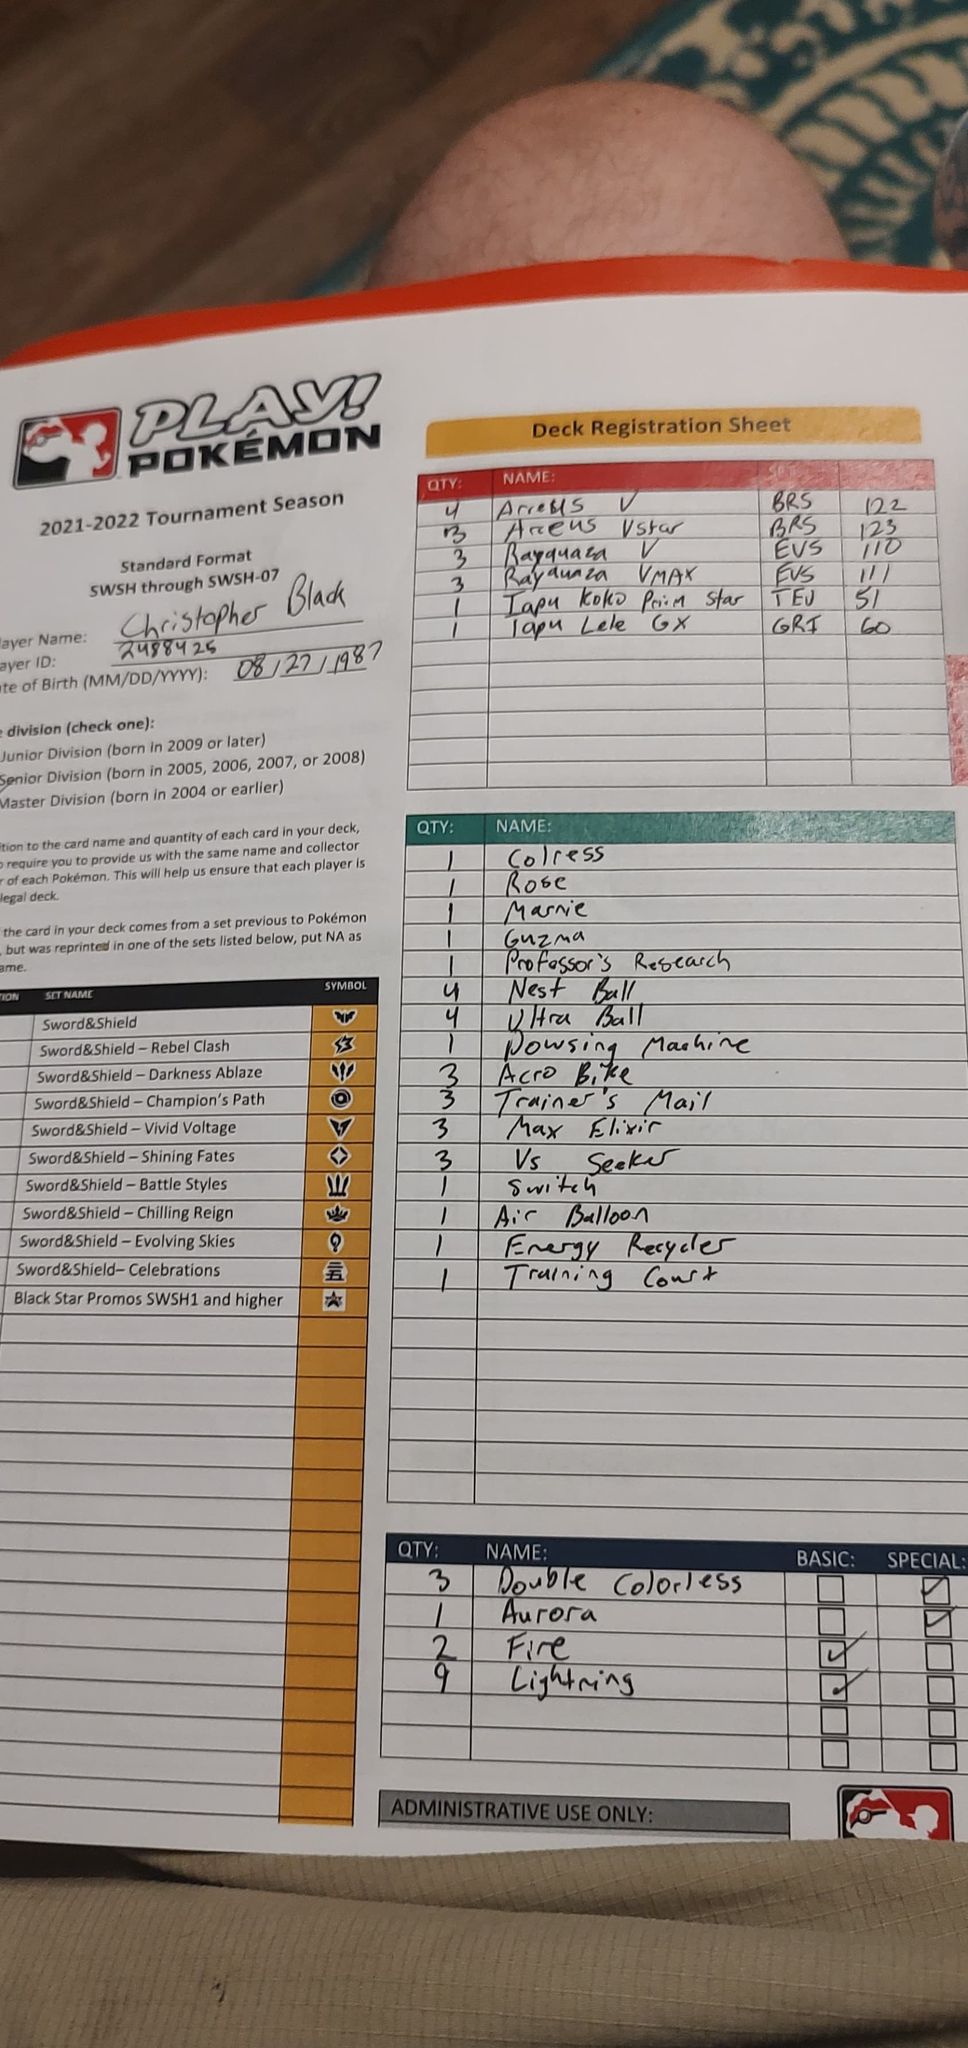 PLAY!
POKÉMON
2021-2022 Tournament Season
Standard Format
SWSH through SWSH-07
ayer Name: Christopher Black
ayer ID: 2488425
te of Birth (MM/DD/YYYY): 08/27/1987
division (check one):
Junior Division (born in 2009 or later)
Senior Division (born in 2005, 2006, 2007, or 2008)
Master Division (born in 2004 or earlier)
ition to the card name and quantity of each card in your deck,
require you to provide us with the same name and collector
r of each Pokémon. This will help us ensure that each player is
legal deck.
the card in your deck comes from a set previous to Pokémon
, but was reprinted in one of the sets listed below, put NA as
ame.
ION SET NAME SYMBOL
Sword&Shield
Sword&Shield – Rebel Clash
Sword&Shield – Darkness Ablaze
Sword&Shield – Champion's Path
Sword&Shield – Vivid Voltage
Sword&Shield – Shining Fates
Sword&Shield – Battle Styles
Sword&Shield – Chilling Reign
Sword&Shield – Evolving Skies
Sword&Shield– Celebrations
Black Star Promos SWSH1 and higher
Deck Registration Sheet
QTY: NAME: SET
4 Arceus V BRS 122
3 Arceus Vstar BRS 123
3 Rayquaza V EVS 110
3 Rayquaza VMAX EVS 111
1 Tapu Koko Prism Star TEU 51
1 Tapu Lele GX GRI 60
QTY: NAME:
1 Colress
1 Rose
1 Marnie
1 Guzma
1 Professor's Research
4 Nest Ball
4 Ultra Ball
1 Dowsing Machine
3 Acro Bike
3 Trainer's Mail
3 Max Elixir
3 Vs Seeker
1 Switch
1 Air Balloon
1 Energy Recycler
1 Training Court
QTY: NAME: BASIC: SPECIAL:
3 Double Colorless
1 Aurora
2 Fire
9 Lightning
ADMINISTRATIVE USE ONLY: